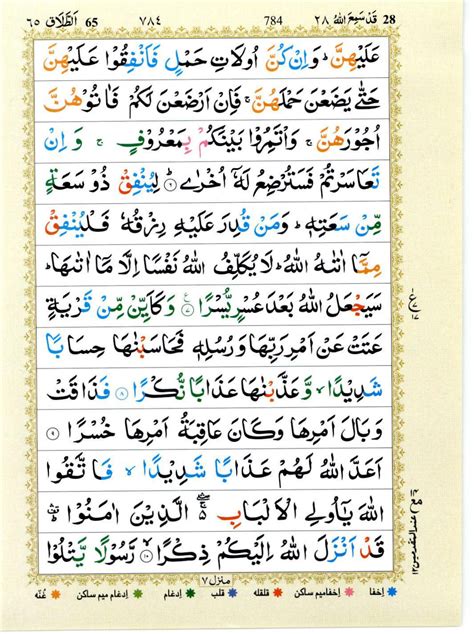 28 قَدۡ سَمِعَ اللّٰهُ ٢٨ 784 ٧٨٤ 65 اَلطَّلَاق ٦٥
عَلَيۡهِنَّ‌ ؕ وَاِنۡ كُنَّ اُولَاتِ حَمۡلٍ فَاَنۡفِقُوۡا عَلَيۡهِنَّ
حَتّٰى يَضَعۡنَ حَمۡلَهُنَّ‌ ۚ فَاِنۡ اَرۡضَعۡنَ لَـكُمۡ فَاٰ تُوۡهُنَّ
اُجُوۡرَهُنَّ‌ ۚ وَاۡتَمِرُوۡا بَيۡنَكُمۡ بِمَعۡرُوۡفٍ‌ ۚ وَاِنۡ
تَعَاسَرۡتُمۡ فَسَتُرۡضِعُ لَهٗۤ اُخۡرٰى ؕ‏ ٦ لِيُنۡفِقۡ ذُوۡ سَعَةٍ
مِّنۡ سَعَتِهٖ‌ؕ وَمَنۡ قُدِرَ عَلَيۡهِ رِزۡقُهٗ فَلۡيُنۡفِقۡ
مِمَّاۤ اٰتٰٮهُ اللّٰهُ‌ؕ لَا يُكَلِّفُ اللّٰهُ نَفۡسًا اِلَّا مَاۤ اٰتٰٮهَا‌ؕ
سَيَجۡعَلُ اللّٰهُ بَعۡدَ عُسۡرٍ يُّسۡرًا‏ ٧ وَكَاَيِّنۡ مِّنۡ قَرۡيَةٍ
عَتَتۡ عَنۡ اَمۡرِ رَبِّهَا وَرُسُلِهٖ فَحَاسَبۡنٰهَا حِسَابًا
شَدِيۡدًاۙ وَّعَذَّبۡنٰهَا عَذَابًا نُّكۡرًا‏ ٨ فَذَاقَتۡ
وَبَالَ اَمۡرِهَا وَكَانَ عَاقِبَةُ اَمۡرِهَا خُسۡرًا‏ ٩
اَعَدَّ اللّٰهُ لَهُمۡ عَذَابًا شَدِيۡدًا‌ ۙ فَاتَّقُوا
اللّٰهَ يٰۤاُولِى الۡاَلۡبَابِ ۛۚ الَّذِيۡنَ اٰمَنُوۡا ۛؕ
قَدۡ اَنۡزَلَ اللّٰهُ اِلَيۡكُمۡ ذِكۡرًا ۙ‏ ١٠ رَّسُوۡلًا يَّتۡلُوۡا
منزل ٧
اخفا اخفامیم ساکن قلقلہ قلب ادغام ادغام میم ساکن غُنّہ